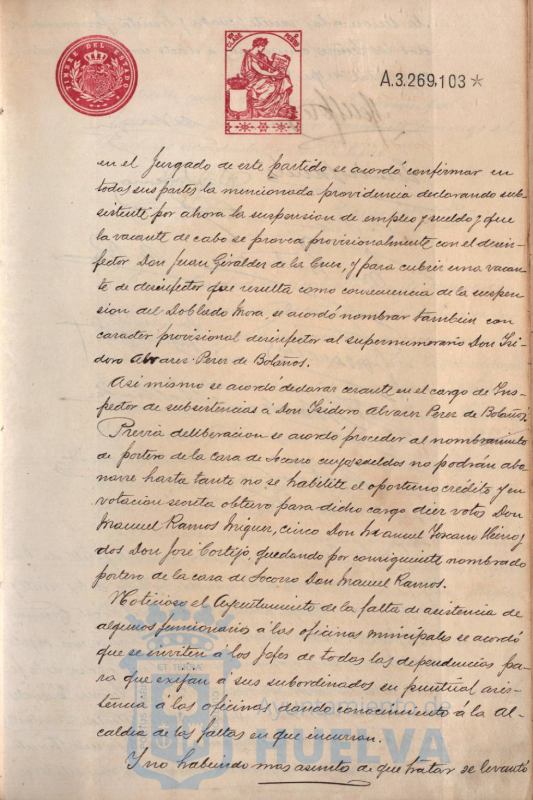 TIMBRE DEL ESTADO
8ª CLASE
A.3.269,103 *
en el Juzgado de este partido se acordó confirmar en
todas sus partes la mencionada providencia declarando sub-
sistente por ahora la suspension de empleo y sueldo y que
la vacante de cabo se provea provisionalmente con el desin-
fector Don Juan Giraldez de la Cuez, y para cubrir una vacan-
te de desinfector que resulta como consecuencia de la suspen-
sion del Doblado Mora, se acordó nombrar tambien con
caracter provisional desinfector al supernumerario Don Isi-
doro Alvarez Perez de Bolaños.
Asi mismo se acordó declarar cesante en el cargo de Ins-
pector de subsistencias á Don Isidoro Alvarez Perez de Bolaños.
Previa deliberacion se acordó proceder al nombramiento
de portero de la casa de Socorro cuyos sueldos no podrán abo-
narse hasta tanto no se habilite el oportuno crédito y en
votacion secreta obtuvo para dicho cargo diez votos Don
Manuel Ramos Miguez, cinco Don Manuel Toscano y
dos Don José Cortejo, quedando por consiguiente nombrado
portero de la casa de Socorro Don Manuel Ramos.
Noticioso el Ayuntamiento de la falta de asistencia de
algunos funcionarios á las oficinas municipales se acordó
que se invite á los Jefes de todas las dependencias pa-
ra que exijan á sus subordinados su puntual asis-
tencia á las oficinas dando conocimiento á la Al-
caldia de las faltas en que incurran.
Y no habiendo mas asunto de que tratar se levantó
Ayuntamiento de
HUELVA